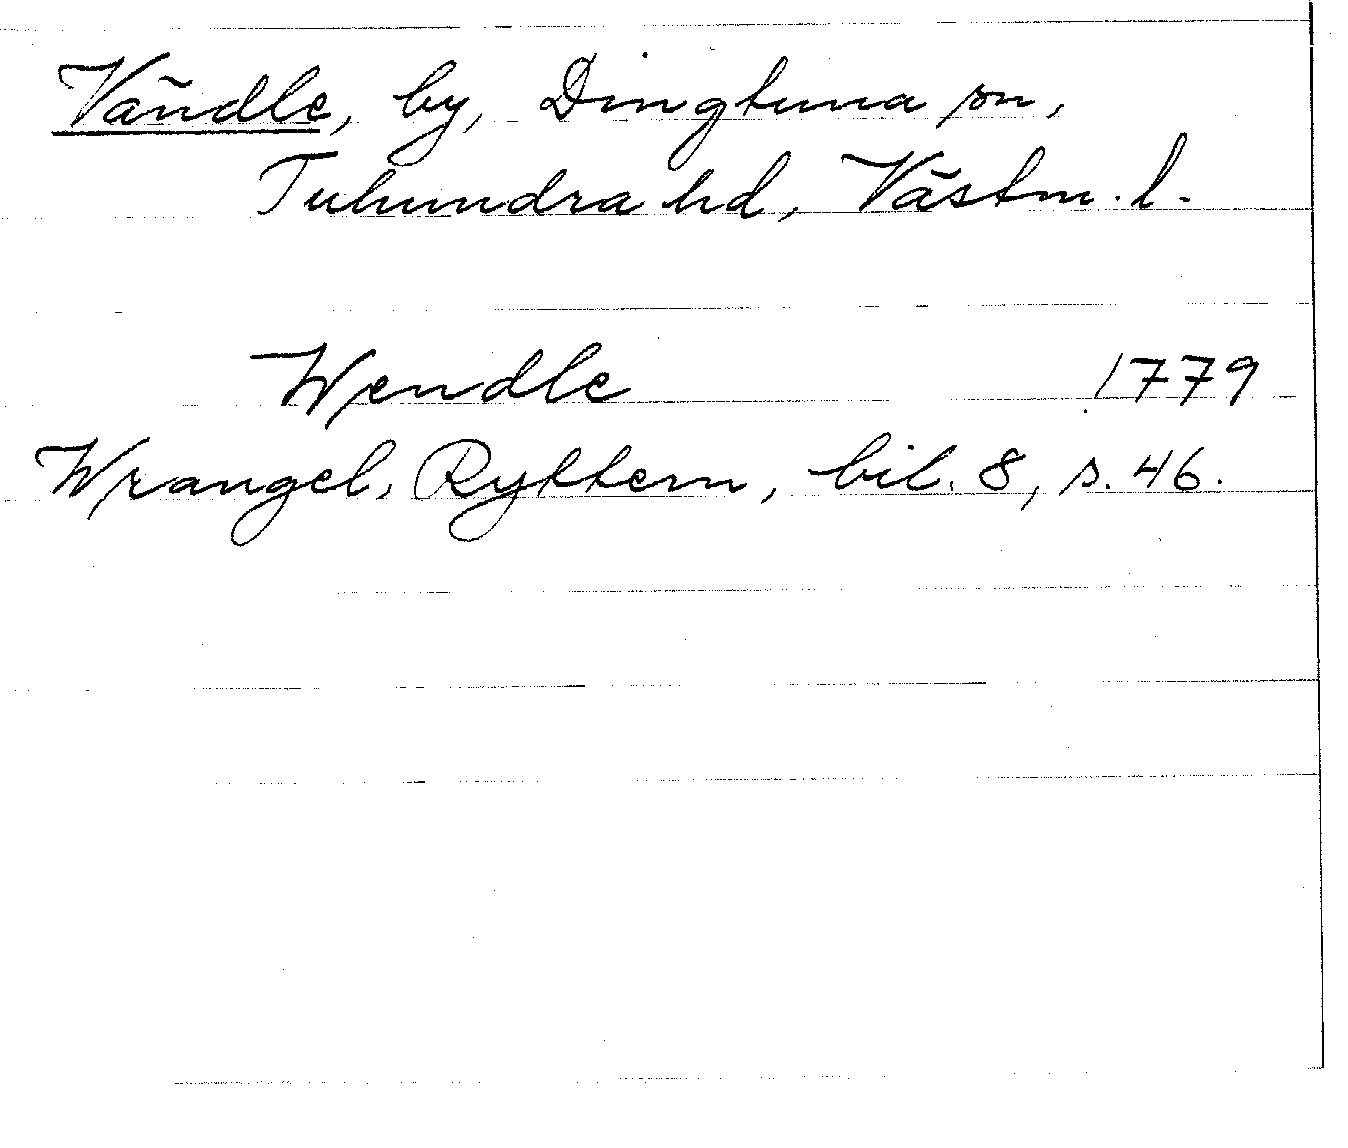 Vändle, by, Dingtuna sn,
Tuhundra hd, Västm. l.
Wendle 1779
Wrangel, Ryttern, bil. 8, s. 46.